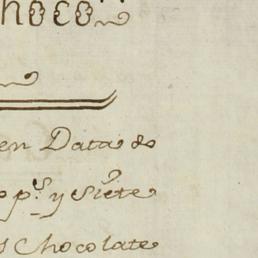 hoco
en Data de
e p.s y siete
s Chocolate